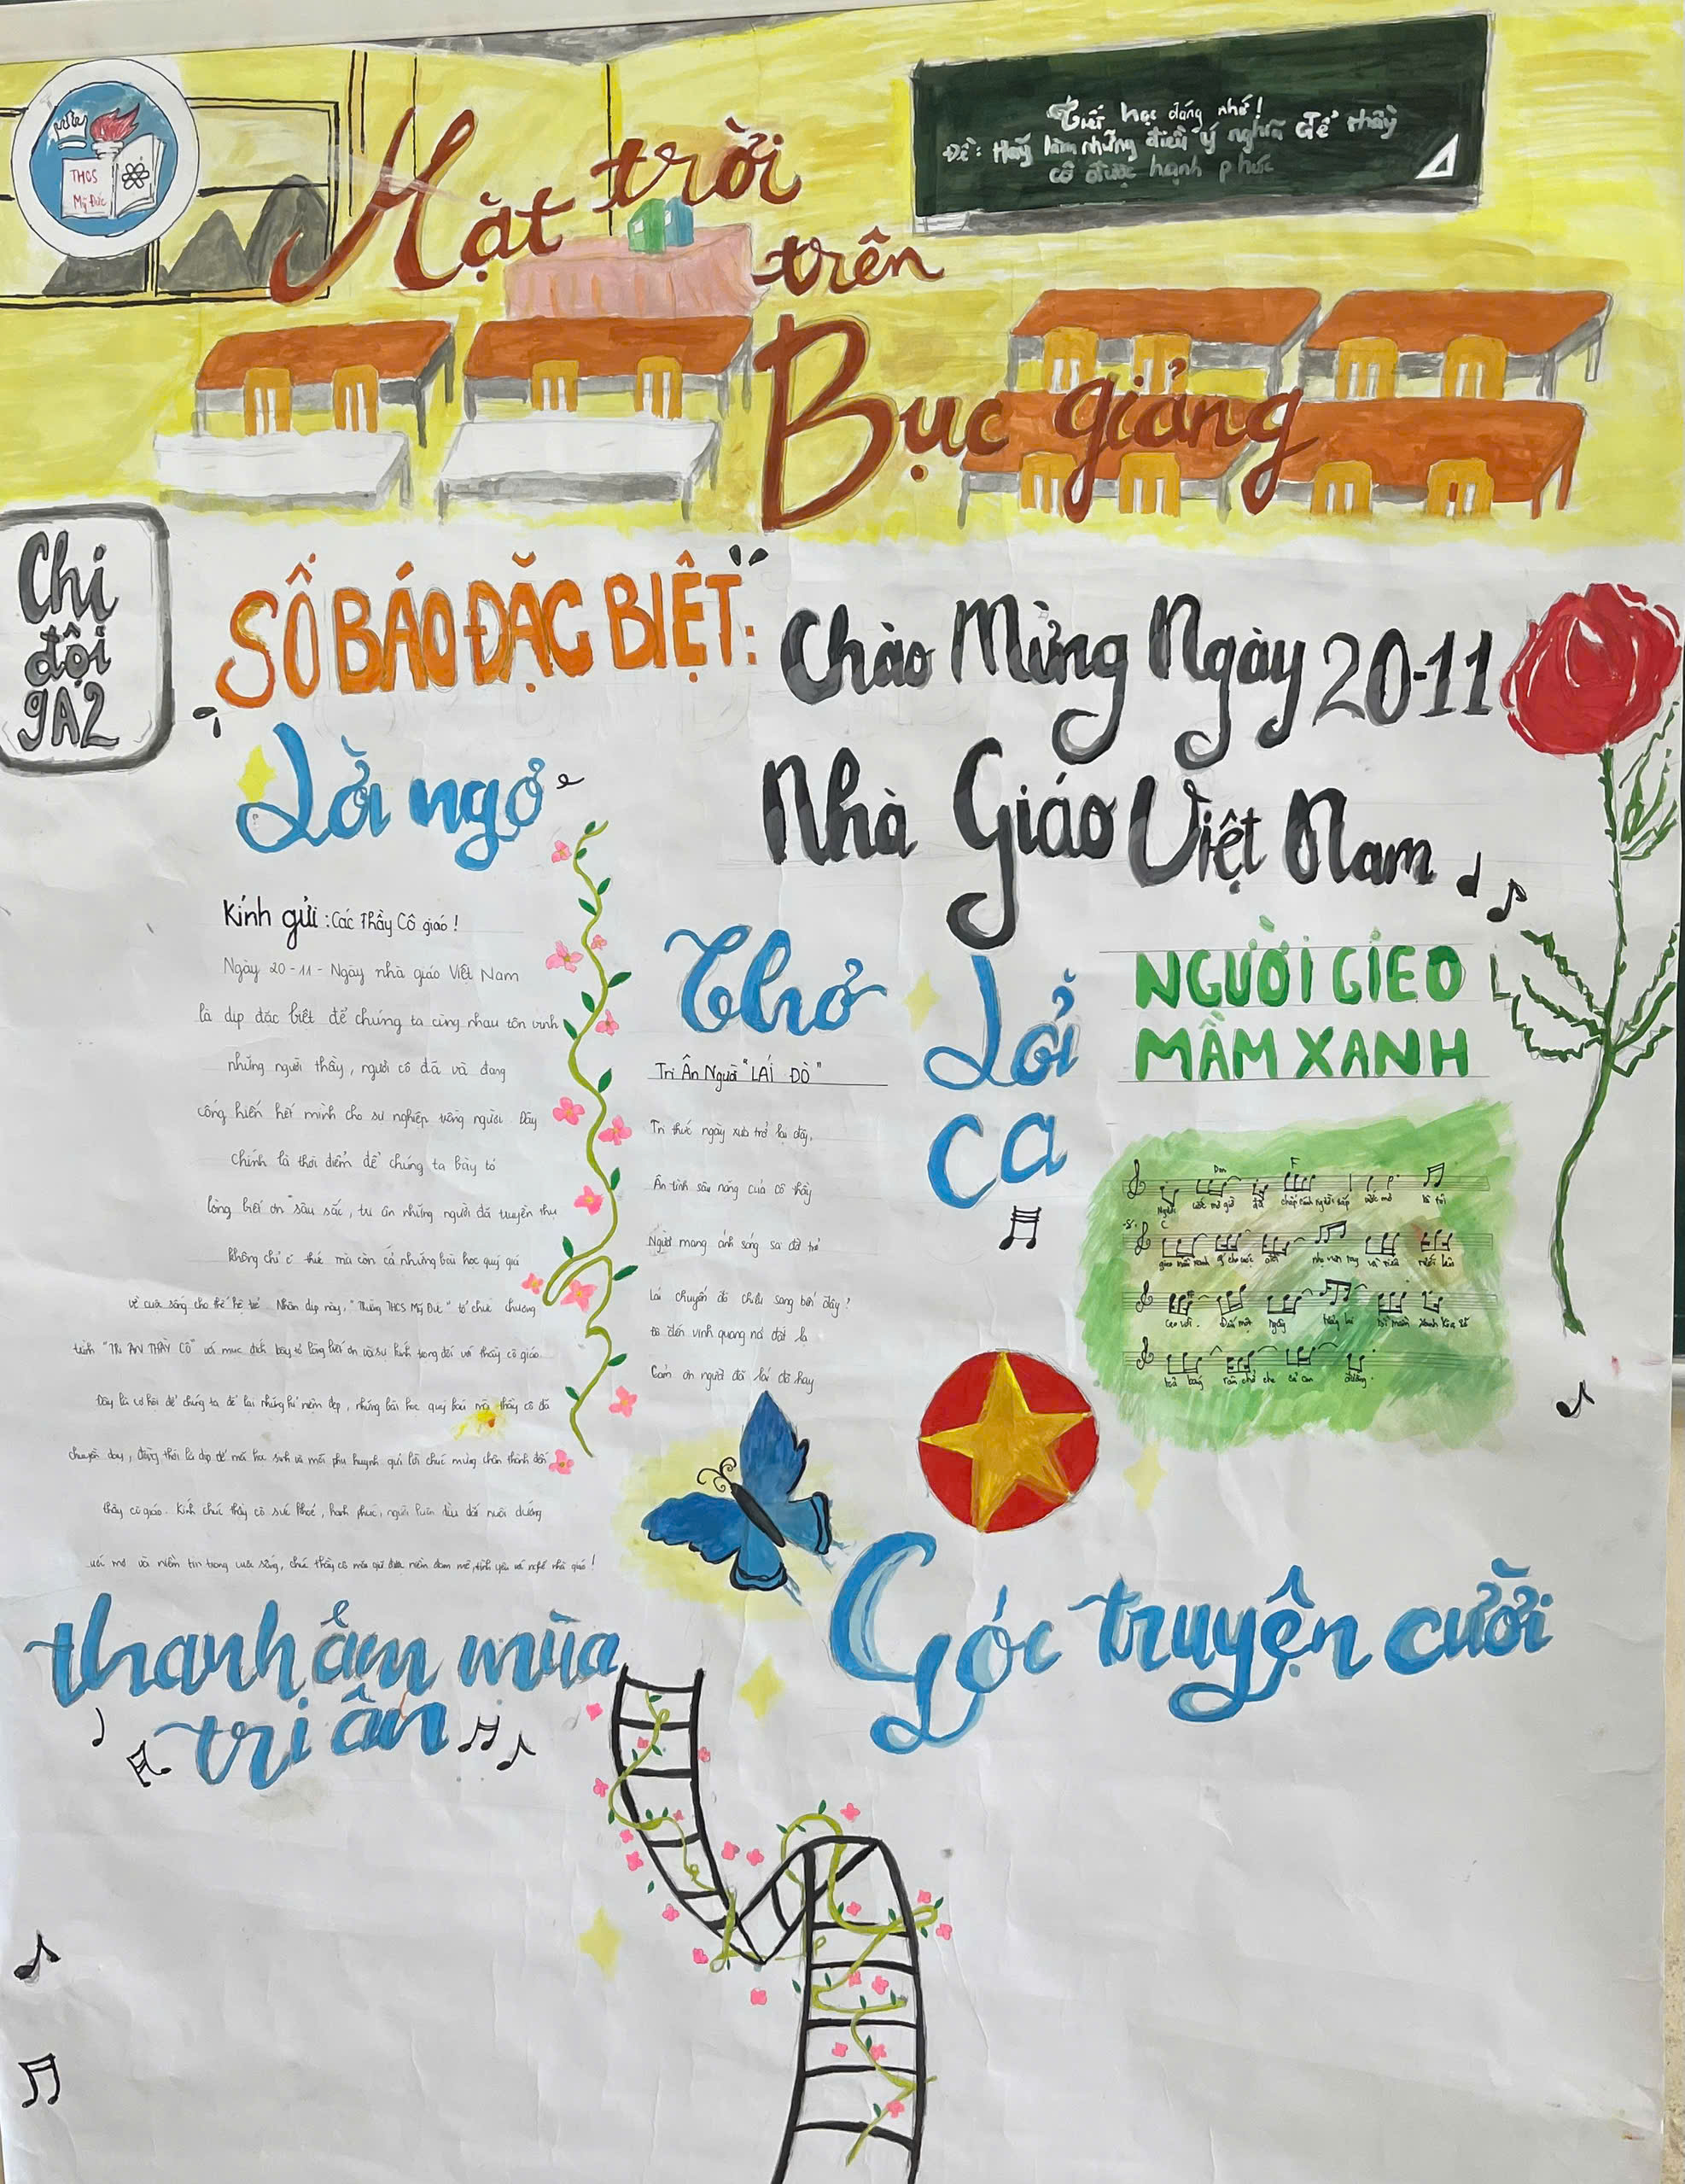 THCS
Mỹ Đức
Tiết học đáng nhớ!
Đề: Hãy làm những điều ý nghĩa để thầy
cô được hạnh phúc
Mặt trời
trên
Bục giảng
Chi
đội
9A2
SỐ BÁO ĐẶC BIỆT:
Chào Mừng Ngày 20-11
Nhà Giáo Việt Nam
Lời ngỏ
Kính gửi: Các Thầy Cô giáo!
Ngày 20-11 - Ngày nhà giáo Việt Nam
là dịp đặc biệt để chúng ta cùng nhau tôn vinh
những người thầy, người cô đã và đang
cống hiến hết mình cho sự nghiệp trồng người. Đây
chính là thời điểm để chúng ta bày tỏ
lòng biết ơn sâu sắc, tri ân những người đã truyền thụ
không chỉ thức mà còn cả những bài học quý giá
về cuộc sống cho thế hệ trẻ. Nhân dịp này, "Trường THCS Mỹ Đức" tổ chức chương
trình "TRI ÂN THẦY CÔ" với mục đích bày tỏ lòng biết ơn và sự kính trọng đối với thầy cô giáo.
Đây là cơ hội để chúng ta để lại những kỉ niệm đẹp, những bài học quý báu mà thầy cô đã
chuyền dạy, đồng thời là dịp để mỗi học sinh và mỗi phụ huynh gửi lời chúc mừng chân thành đến
thầy cô giáo. Kính chúc thầy cô sức khoẻ, hạnh phúc, người luôn dìu dắt nuôi dưỡng
ước mơ và niềm tin trong cuộc sống, chúc thầy cô mãi giữ được niềm đam mê, tình yêu với nghề nhà giáo!
Thơ
Tri Ân Người "LÁI ĐÒ"
Tri thức ngày xưa trở lại đây,
Ân tình sâu nặng của cô thầy
Người mang ánh sáng soi đời trẻ
Lái chuyến đò chiều sang bến đây?
Đò đến vinh quang nơi đất lạ
Cảm ơn người đã lái đò hay
Lời
ca
NGƯỜI GIEO
MẦM XANH
Dm F
Người ước mơ giờ đã chắp cánh ước mơ là tôi
C
gieo mầm xanh
Góc truyện cười
thanh âm mùa
tri ân